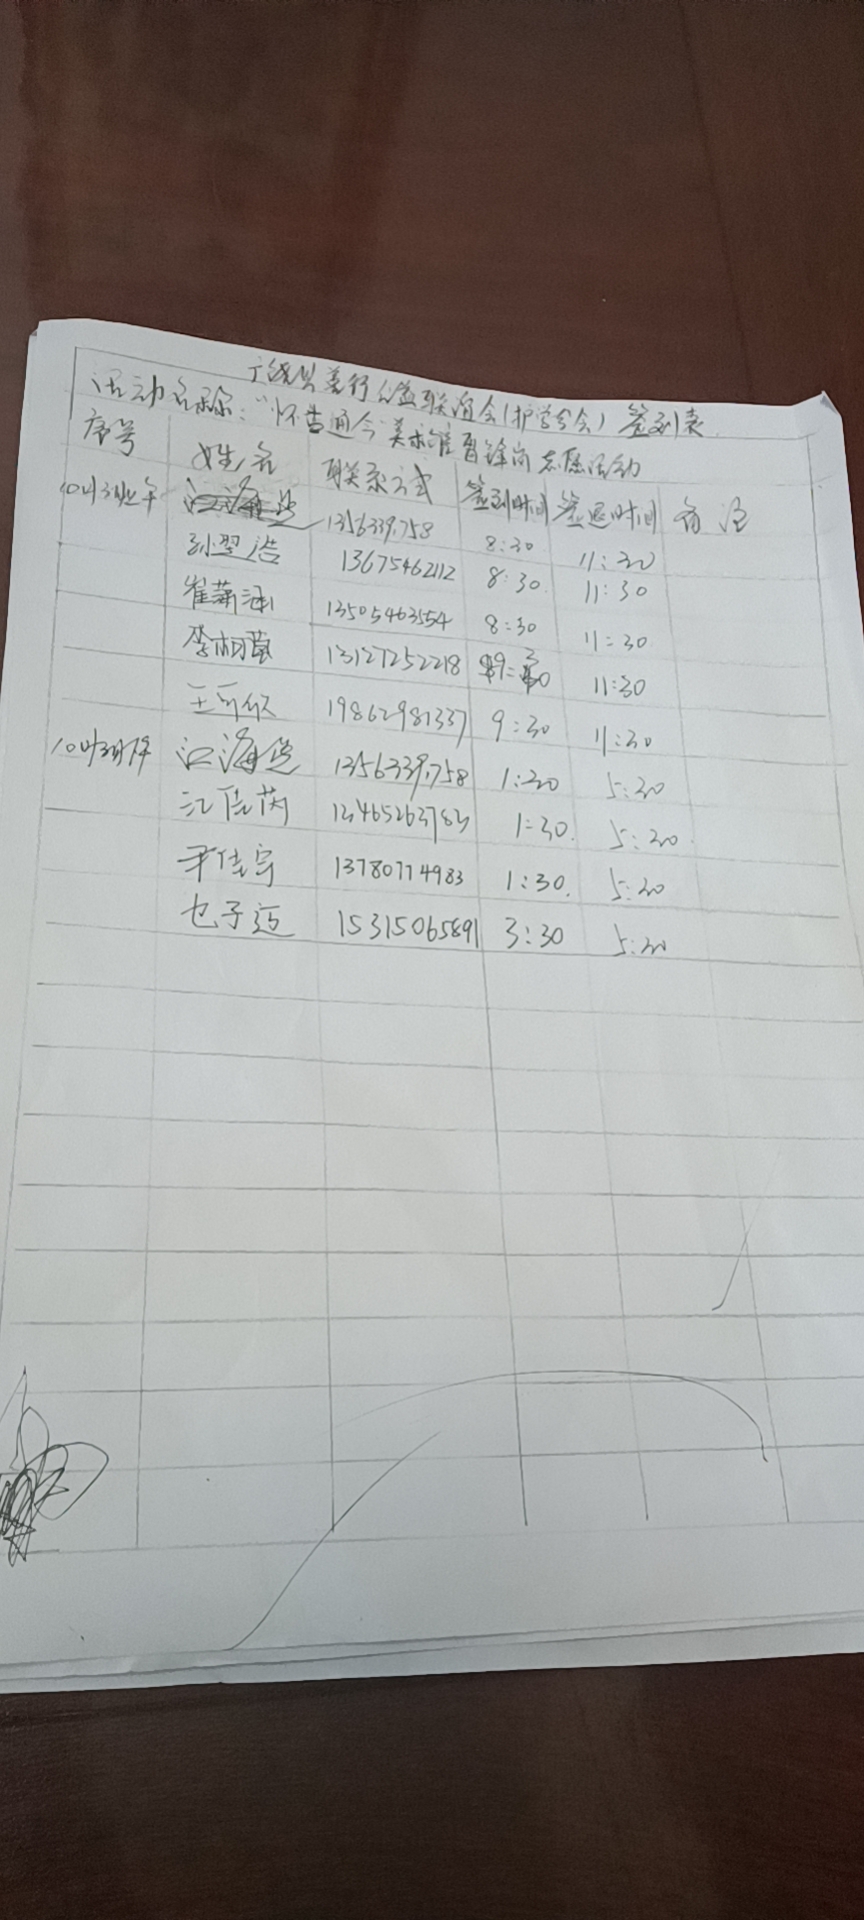 广饶县善行公益联谊会(护学分会) 签到表
活动名称:"怀古通今"美术馆 志愿活动
序号 姓名 联系方式 签到时间 签退时间 备注
10月3日上午 江海 8:30 11:30
孙翌浩 13675462112 8:30 11:30
崔萧涵 13505463554 8:30 11:30
李相莹 13127252218 11:30
王可欣 19862981337 9:30 11:30
10月3日下午 江海 1:30 5:30
江佳芮 1:30 5:30
尹佳宇 13780774983 1:30 5:30
乜子迈 15315065891 3:30 5:30